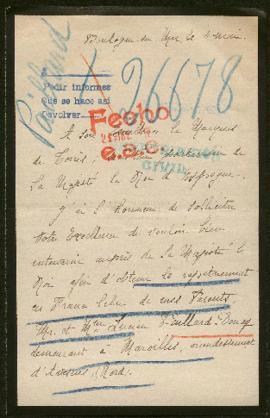 Boulogne sur Mer le
Paillard
26678
Pedir informes
Que se hace así
Devolver
Fecho
A Son Excellence le Marquis
de Torres,
Sa Majesté le Roi d'Espagne.
J'ai l'honneur de solliciter
Votre Excellence de vouloir bien
intervenir auprès de Sa Majesté le
Roi afin d'obtenir le rapatriement
en France libre de mes Parents
Mr. et Mme Lucien Paillard-Douay
demeurant à Maroilles, arrondissement
d'Avesnes (Nord).